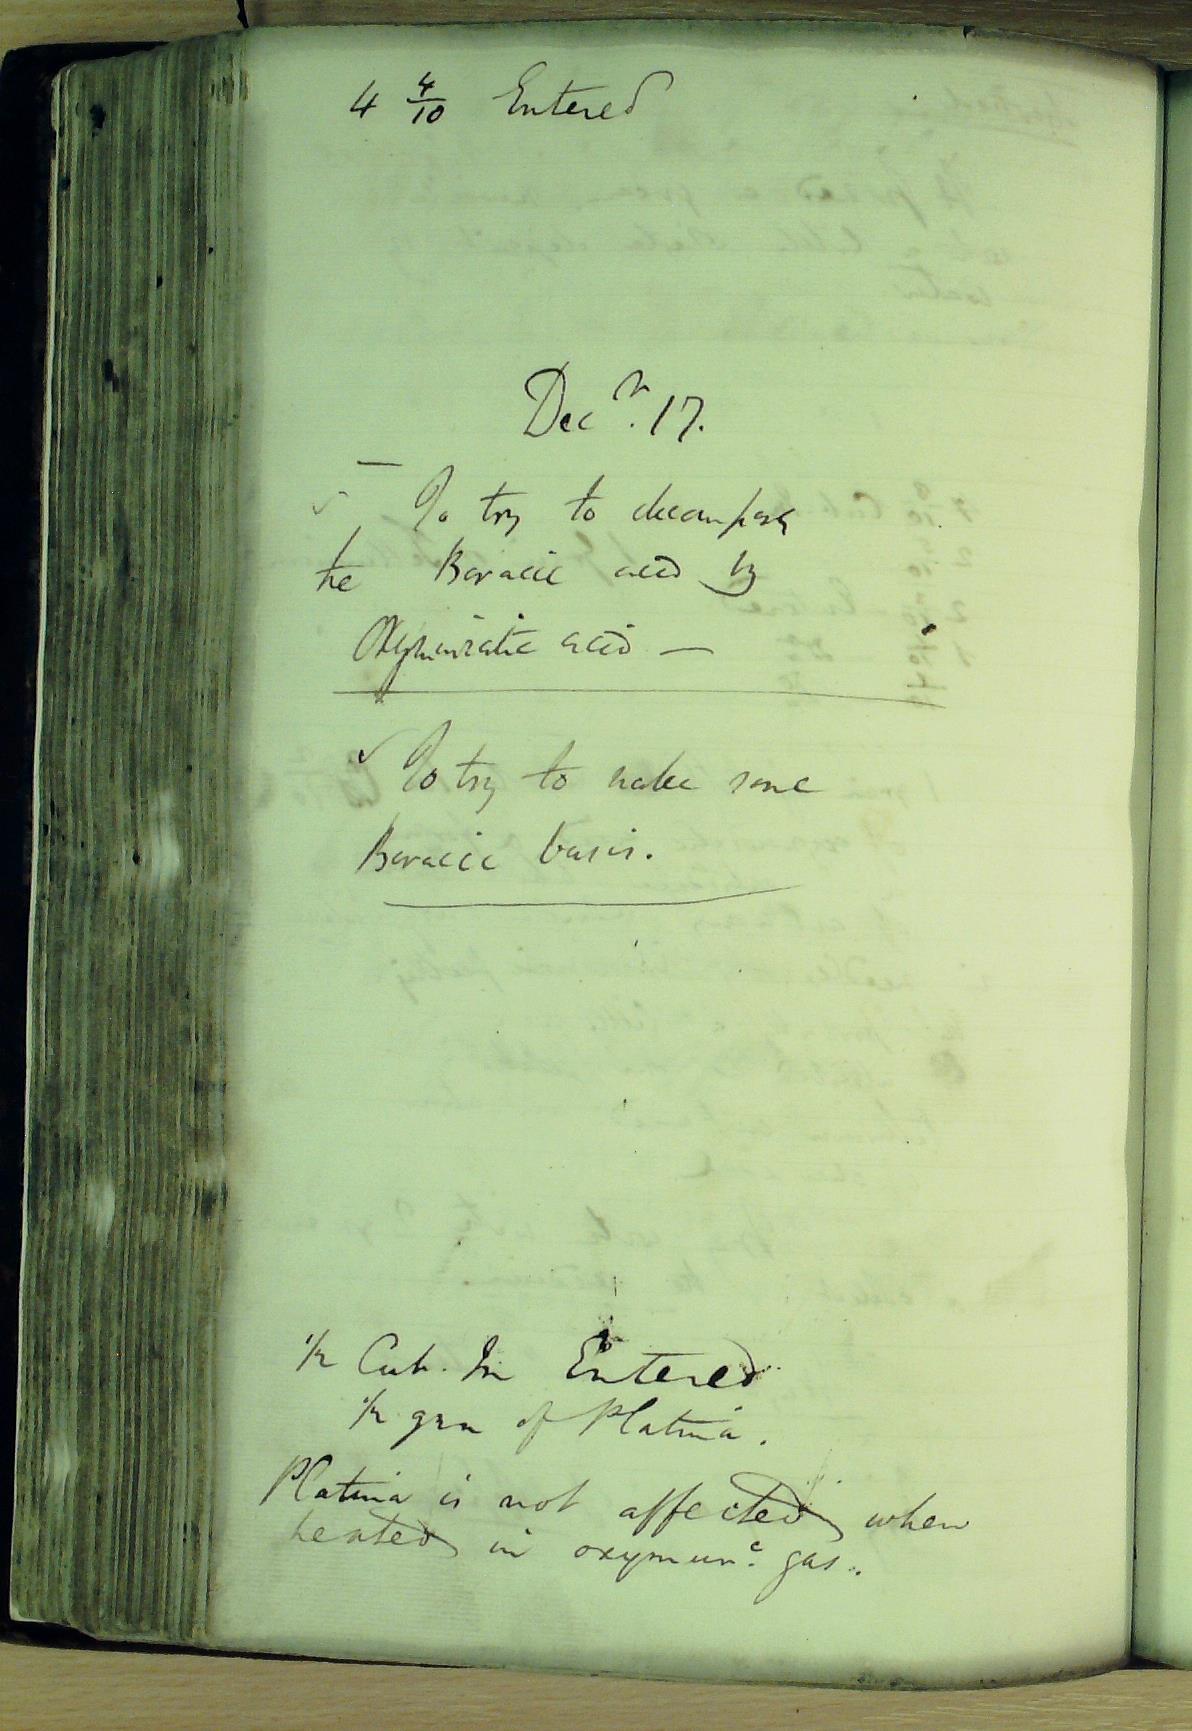 4 4/10 Entered
Decr. 17.
To try to decompose
the Boracic acid by
Oxymuriatic acid —
To try to make some
Boracic basis.
1/2 Cub. In Entered
1/2 grn of Platina.
Platina is not affected when
heated in oxymurc. gas.